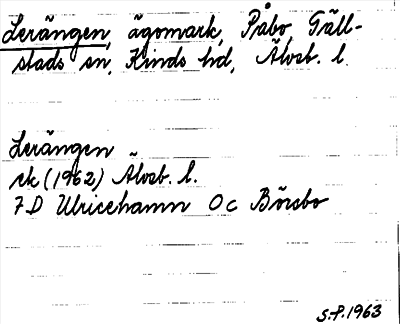 Lerängen, ägomark, Påbo, Gäll-
stads sn, Kinds hd, Älvsb. l.
Lerängen
ek (1962) Älvsb. l.
7 D Ulricehamn Oc Börsbo
S.P. 1963